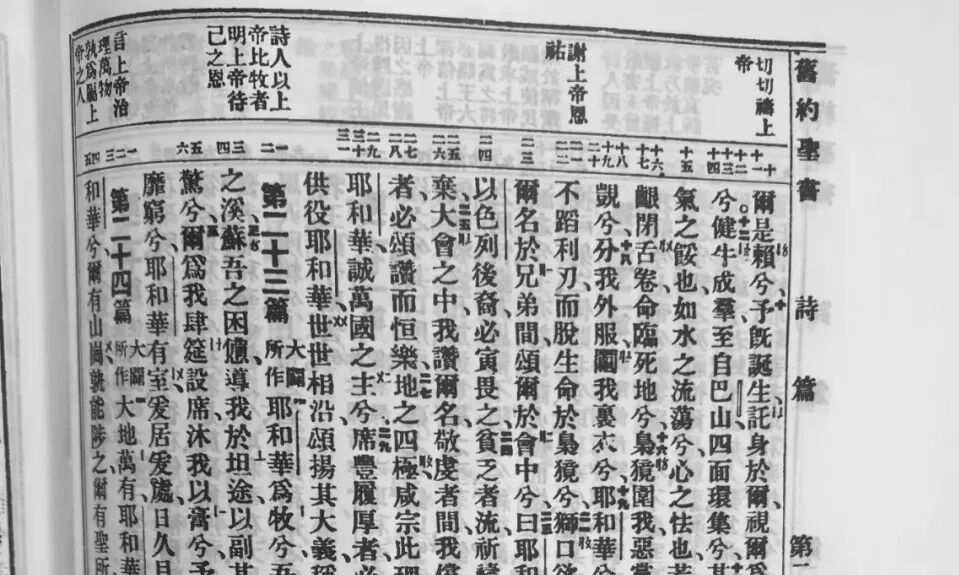 舊約聖書 詩篇 第
切切禱上
帝
謝上帝恩
祐
詩人以上
帝比牧者
明上帝待
己之恩
言上帝治
理萬物
孰為屬上
帝之人
爾是賴兮、予旣誕生、託身於爾、視爾為
兮、健牛成羣、至自巴山、四面環集兮、
氣之餒也、如水之流蕩兮、心之怯也、若
齦閉舌卷、命臨死地兮、梟獍圍我、惡黨
覬兮、分我外服、鬮我裏衣兮、耶和華兮、
不蹈利刃、而脫生命於梟獍兮、獅口欲
爾名於兄弟間、頌爾於會中兮、曰耶和
以色列後裔、必寅畏之、貧乏者流、祈禱
棄、大會之中、我讚爾名、敬虔者間、我償
者必頌讚而恒樂、地之四極、咸宗此理
耶和華誠萬國之主兮、席豐履厚者、必
供役耶和華、世世相沿、頌揚其大義、
第二十三篇 大闢所作 耶和華為牧兮、吾
之溪、蘇吾之困憊、導我於坦途、以副其
驚兮、爾為我肆筵設席、沐我以膏兮、予
靡窮兮、耶和華有室、爰居爰處、日久月
第二十四篇 大闢所作 大地萬有、耶和華
和華兮、爾有山崗、孰能陟之、爾有聖所